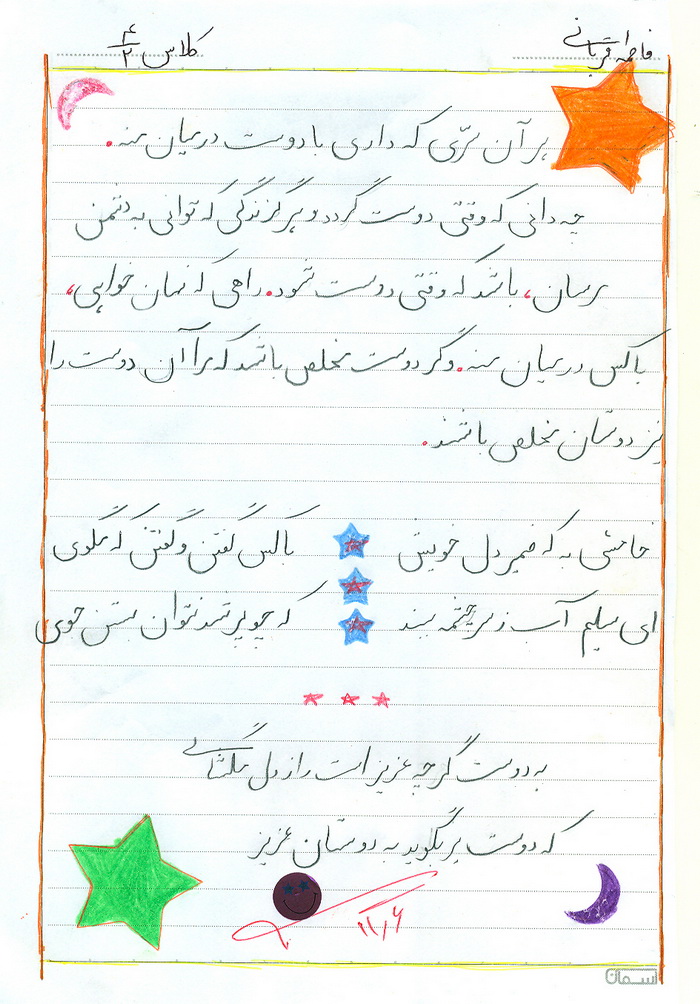 فاطمه قربانی
کلاس ۴/۲
هر آن سرّی که داری با دوست در میان منه.
چه دانی که وقتی دوست گردد و هر گزندگی که توانی به دشمن
مرسان، باشد که وقتی دوست شود. راهی که نهان خواهی،
با کس در میان منه. وگر دوست مخلص باشد که مرا آن دوست را
نیز دوستان مخلص باشند.
خامشی به که ضمیر دل خویش با کس گفتن و گفتن که مگوی
ای سلیم آب ز سرچشمه ببند که چو پر شد نتوان بستن جوی
به دوست گرچه عزیز است راز دل مگشای
که دوست نیز بگوید به دوستان عزیز
۱۱/۶
آسمان